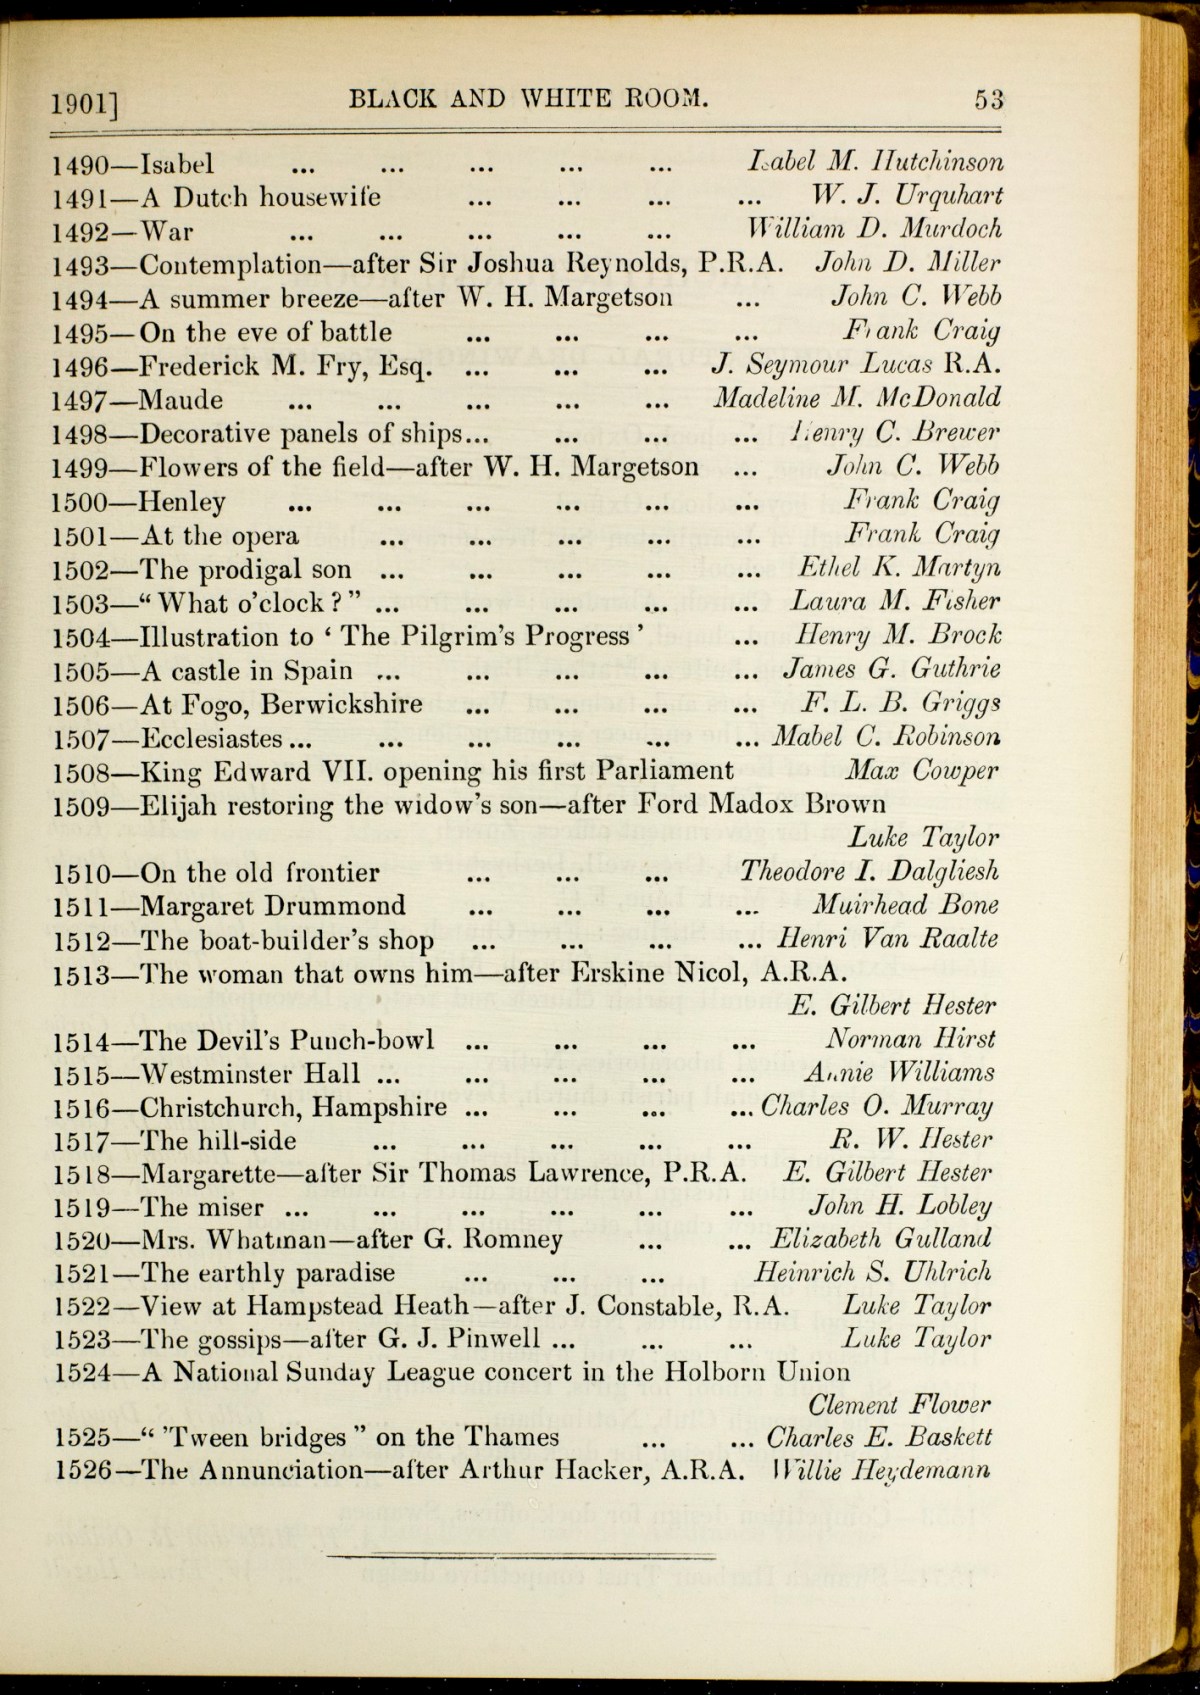 1901] BLACK AND WHITE ROOM. 53
1490—Isabel ... ... ... ... ... Isabel M. Hutchinson
1491—A Dutch housewife ... ... ... ... W. J. Urquhart
1492—War ... ... ... ... ... William D. Murdoch
1493—Contemplation—after Sir Joshua Reynolds, P.R.A. John D. Miller
1494—A summer breeze—after W. H. Margetson ... John C. Webb
1495—On the eve of battle ... ... ... ... Frank Craig
1496—Frederick M. Fry, Esq. ... ... ... J. Seymour Lucas R.A.
1497—Maude ... ... ... ... ... Madeline M. McDonald
1498—Decorative panels of ships... ... ... ... Henry C. Brewer
1499—Flowers of the field—after W. H. Margetson ... John C. Webb
1500—Henley ... ... ... ... ... ... Frank Craig
1501—At the opera ... ... ... ... ... Frank Craig
1502—The prodigal son ... ... ... ... ... Ethel K. Martyn
1503—“What o’clock?” ... ... ... ... ... Laura M. Fisher
1504—Illustration to ‘The Pilgrim’s Progress’ ... Henry M. Brock
1505—A castle in Spain ... ... ... ... ... James G. Guthrie
1506—At Fogo, Berwickshire ... ... ... ... F. L. B. Griggs
1507—Ecclesiastes... ... ... ... ... ... Mabel C. Robinson
1508—King Edward VII. opening his first Parliament Max Cowper
1509—Elijah restoring the widow’s son—after Ford Madox Brown
Luke Taylor
1510—On the old frontier ... ... ... Theodore I. Dalgliesh
1511—Margaret Drummond ... ... ... ... Muirhead Bone
1512—The boat-builder’s shop ... ... ... ... Henri Van Raalte
1513—The woman that owns him—after Erskine Nicol, A.R.A.
E. Gilbert Hester
1514—The Devil’s Punch-bowl ... ... ... ... Norman Hirst
1515—Westminster Hall ... ... ... ... ... Annie Williams
1516—Christchurch, Hampshire ... ... ... ... Charles O. Murray
1517—The hill-side ... ... ... ... ... R. W. Hester
1518—Margarette—after Sir Thomas Lawrence, P.R.A. E. Gilbert Hester
1519—The miser ... ... ... ... ... ... John H. Lobley
1520—Mrs. Whatman—after G. Romney ... ... Elizabeth Gulland
1521—The earthly paradise ... ... ... Heinrich S. Uhlrich
1522—View at Hampstead Heath—after J. Constable, R.A. Luke Taylor
1523—The gossips—after G. J. Pinwell ... ... ... Luke Taylor
1524—A National Sunday League concert in the Holborn Union
Clement Flower
1525—“’Tween bridges” on the Thames ... ... Charles E. Baskett
1526—The Annunciation—after Arthur Hacker, A.R.A. Willie Heydemann